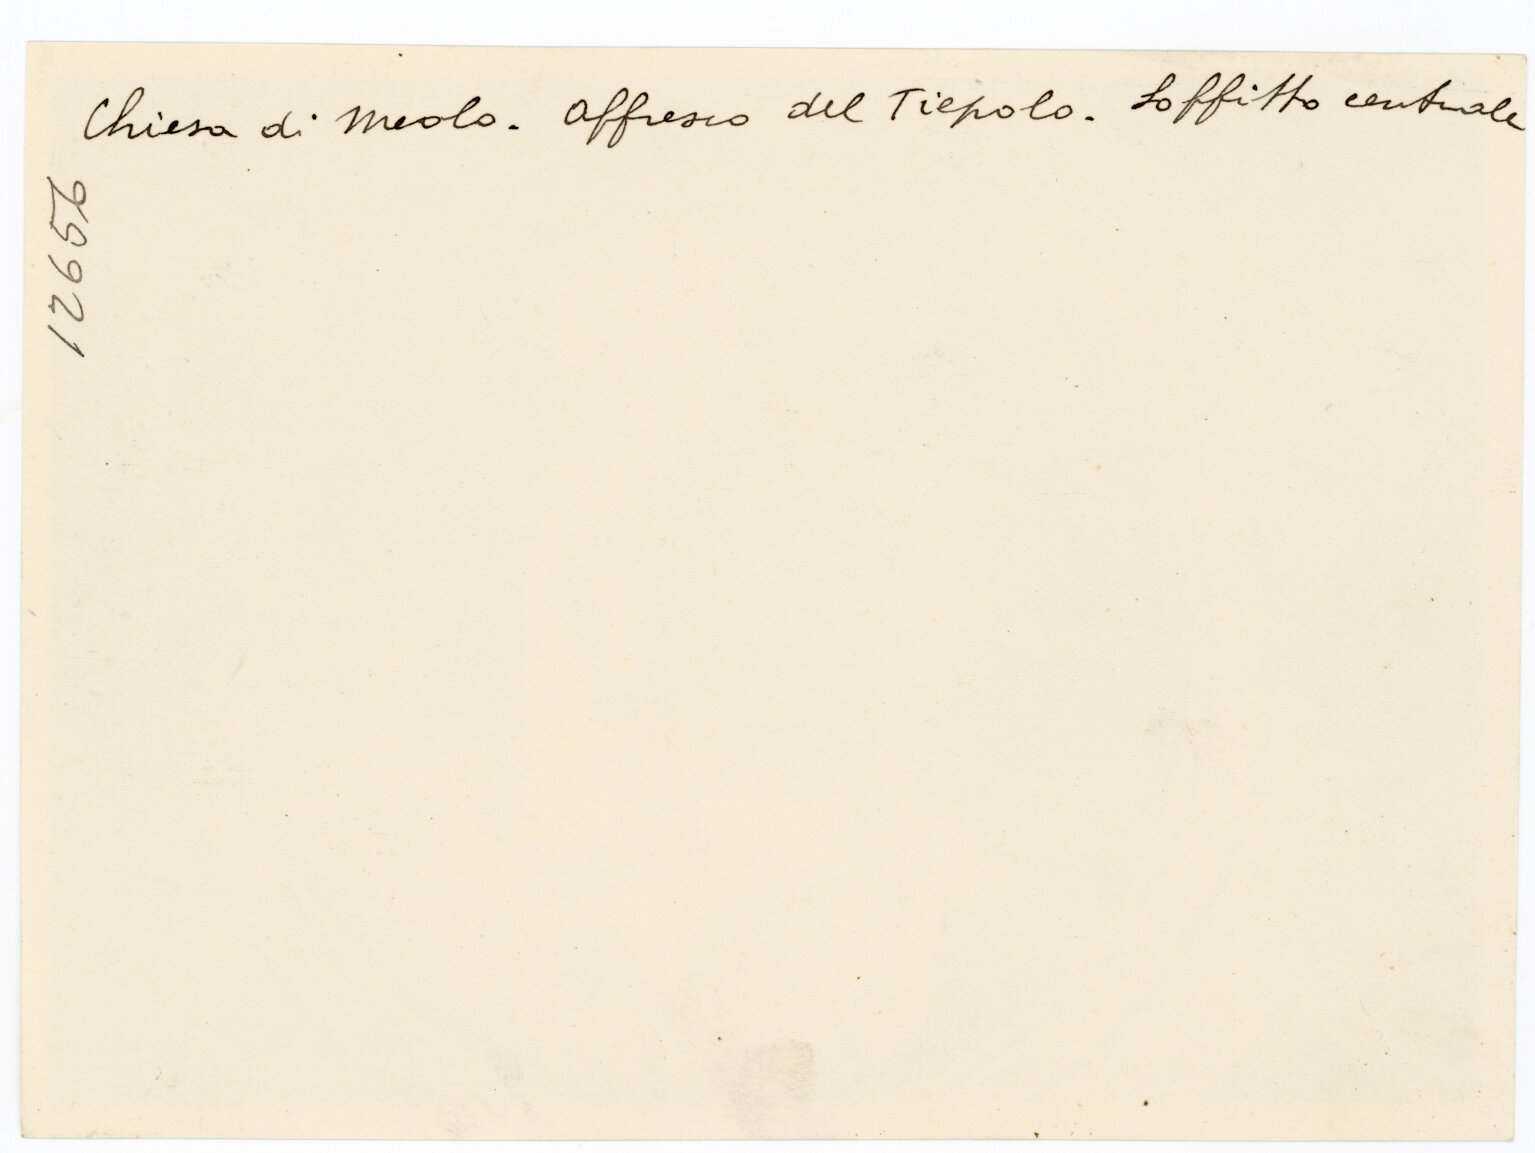 Chiesa di Meolo. Affresco del Tiepolo. Soffitto centrale
12656